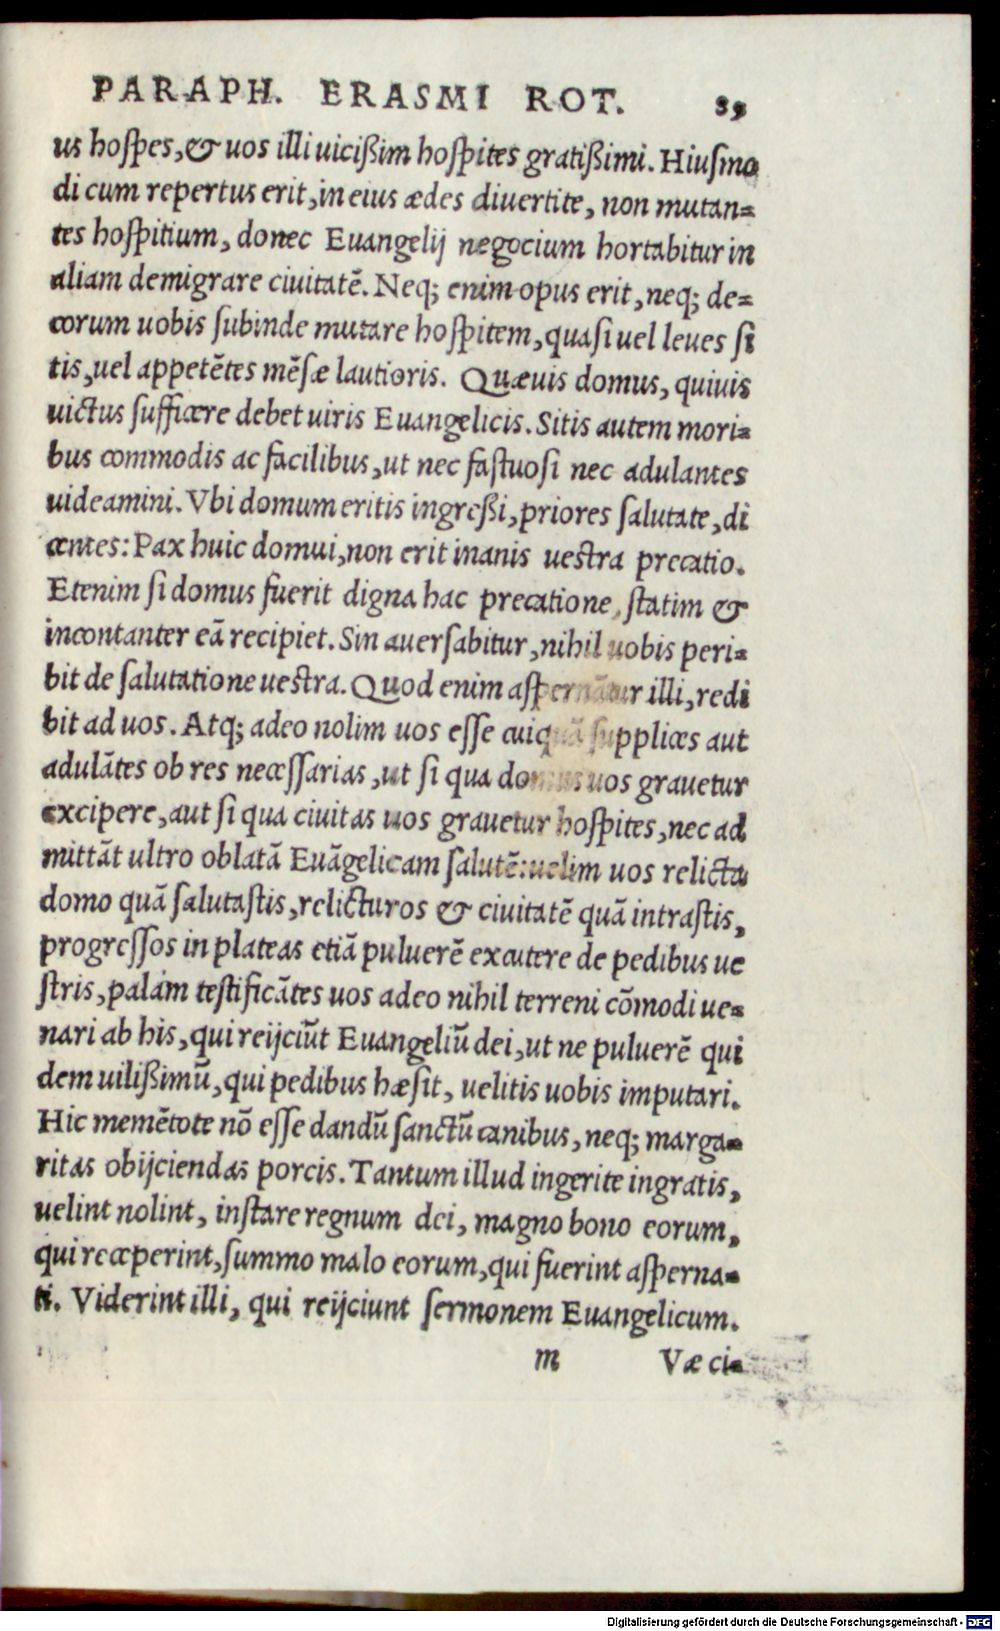 PARAPH. ERASMI ROT. 89
us hoſpes, & uos illi uicißim hoſpites gratißimi. Hiuſmo
di cum repertus erit, in eius ædes diuertite, non mutan=
tes hoſpitium, donec Euangelij negocium hortabitur in
aliam demigrare ciuitatē. Neq; enim opus erit, neq; de=
corum uobis ſubinde mutare hoſpitem, quaſi uel leues ſi
tis, uel appetētes mēſæ lautioris. Quæuis domus, quiuis
uictus ſufficere debet uiris Euangelicis. Sitis autem mori=
bus commodis ac facilibus, ut nec faſtuoſi nec adulantes
uideamini. Vbi domum eritis ingreßi, priores ſalutate, di
centes: Pax huic domui, non erit inanis ueſtra precatio.
Etenim ſi domus fuerit digna hac precatione, ſtatim &
incontanter eā recipiet. Sin auerſabitur, nihil uobis peri=
bit de ſalutatione ueſtra. Quod enim aſpernātur illi, redi
bit ad uos. Atq; adeo nolim uos eſſe cuiquā ſupplices aut
adulātes ob res neceſſarias, ut ſi qua domus uos grauetur
excipere, aut ſi qua ciuitas uos grauetur hoſpites, nec ad
mittāt ultro oblatā Euāgelicam ſalutē: uelim uos relicta
domo quā ſalutaſtis, relicturos & ciuitatē quā intraſtis,
progreſſos in plateas etiā puluerē excutere de pedibus ue
ſtris, palàm teſtificātes uos adeo nihil terreni cōmodi ue=
nari ab his, qui reijciūt Euangeliū dei, ut ne puluerē qui
dem uilißimū, qui pedibus hæſit, uelitis uobis imputari.
Hic memētote nō eſſe dandū ſanctū canibus, neq; marga=
ritas obijciendas porcis. Tantum illud ingerite ingratis,
uelint nolint, inſtare regnum dei, magno bono eorum,
qui receperint, ſummo malo eorum, qui fuerint aſperna=
ti. Viderint illi, qui reijciunt ſermonem Euangelicum.
m Væ ci=
Digitalisierung gefördert durch die Deutsche Forschungsgemeinschaft - DFG